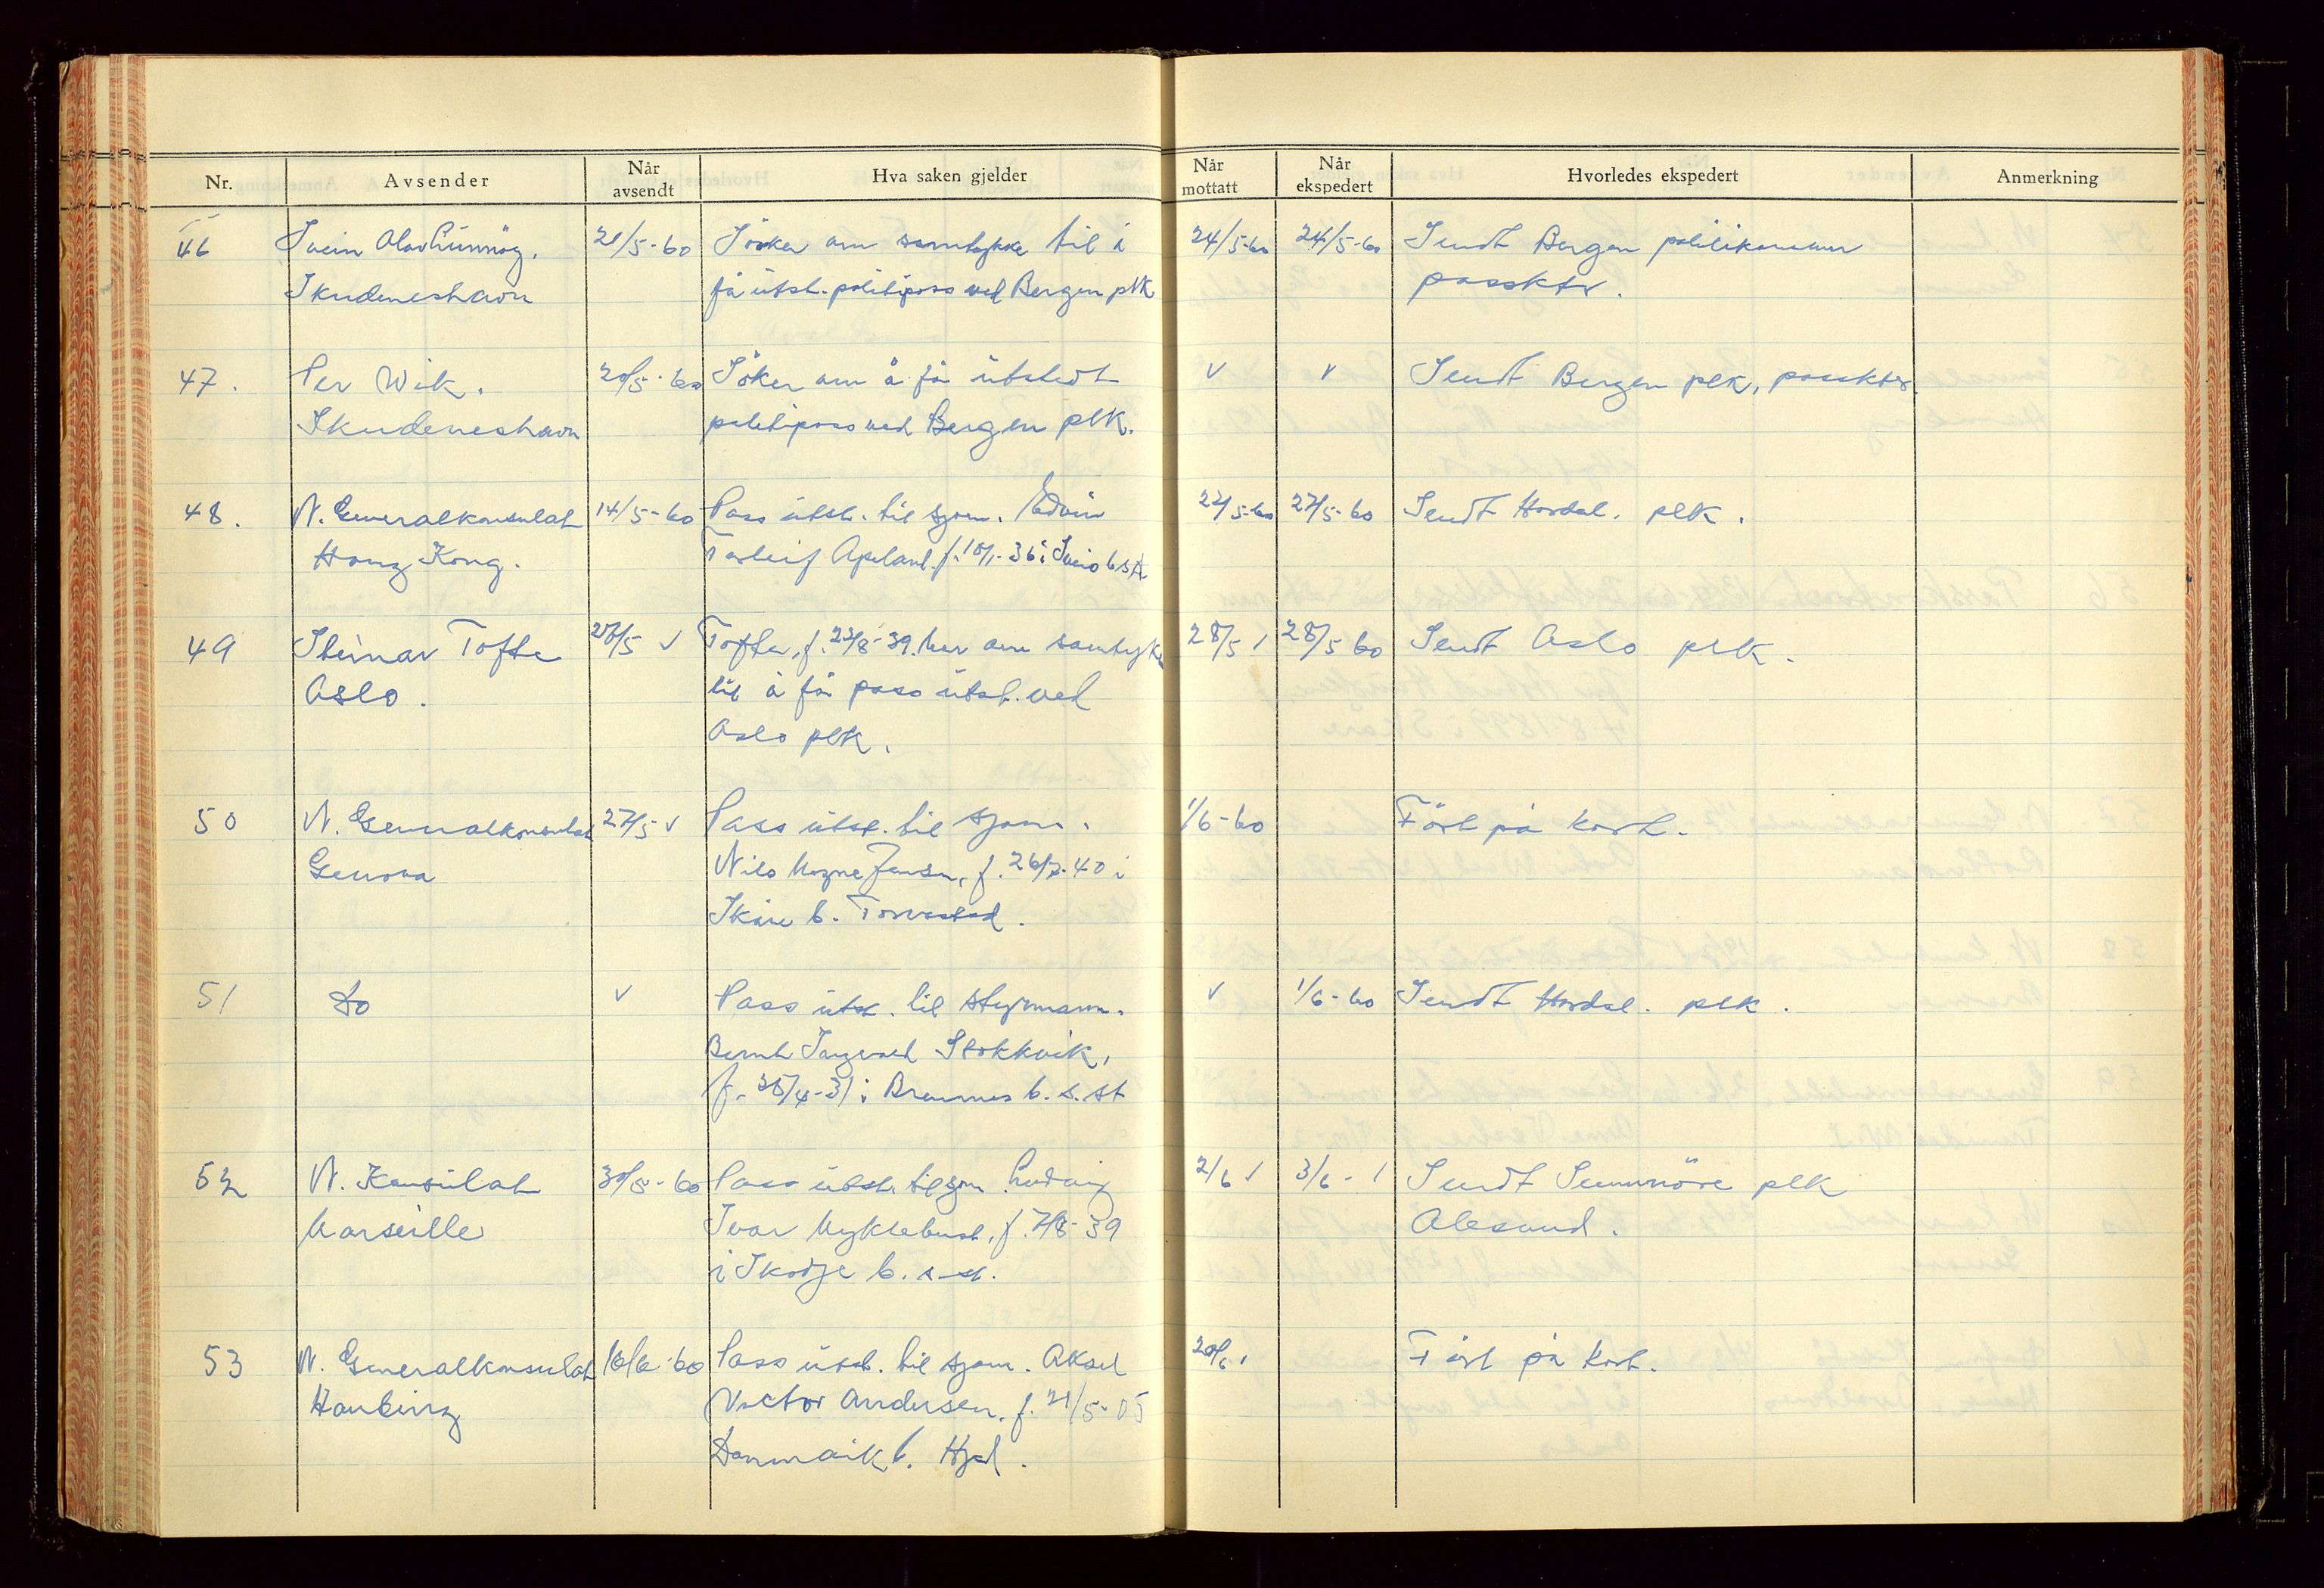 Nr.
Avsender
Når avsendt
Hva saken gjelder
Når mottatt
Når ekspedert
Hvorledes ekspedert
Anmerkning
46 Svein Olav 21/5-60 Söker om samtykke til å 24/5-60 24/5-60 Sendt Bergen politikammer
Skudeneshavn få utst. politipass ved Bergen plk passktr.
47. Per Wik. 20/5-60 Söker om å få utstedt v v Sendt Bergen plk, passktr.
Skudeneshavn politipass ved Bergen plk.
48. N. Generalkonsulat 14/5-60 Pass utst. til sjøm. Edvin 27/5-60 27/5-60 Sendt Hordal. plk.
Hong Kong. Torleif Apeland. f. 18/1-36 i Sveio b s st
49 Steinar Tofte 28/5 v Tofte, f. 22/8-39. ber om samtykke 28/5 / 28/5 60 Sendt Oslo plk.
Oslo. til å få pass utst. ved
Oslo plk.
50 N. Generalkonsulat 27/5 v Pass utst. til sjøm. 1/6-60 Fört på kort.
Genova Nils Magne Jensen, f. 26/2-40 i
Skåre b. Torvastad.
51 do v Pass utst. til styrmann. v 1/6-60 Sendt Hordal. plk.
Bernt Ingvald Stokkvik,
f. i Bremnes b. s. st
52 N. Konsulat 30/5-60 Pass utst. til sjm. Ludvig 2/6 / 3/6 - / Sendt Sunnmöre plk
Marseille Ivar Myklebust, f. 7/8-39 Ålesund.
i Skodje b. s. st.
53 N. Generalkonsulat 16/6-60 Pass utst. til sjøm. Aksel 20/6 / Fört på kort.
Hamburg Victor Andersen. f. 21/5-05
Danmark b. Hgsd.